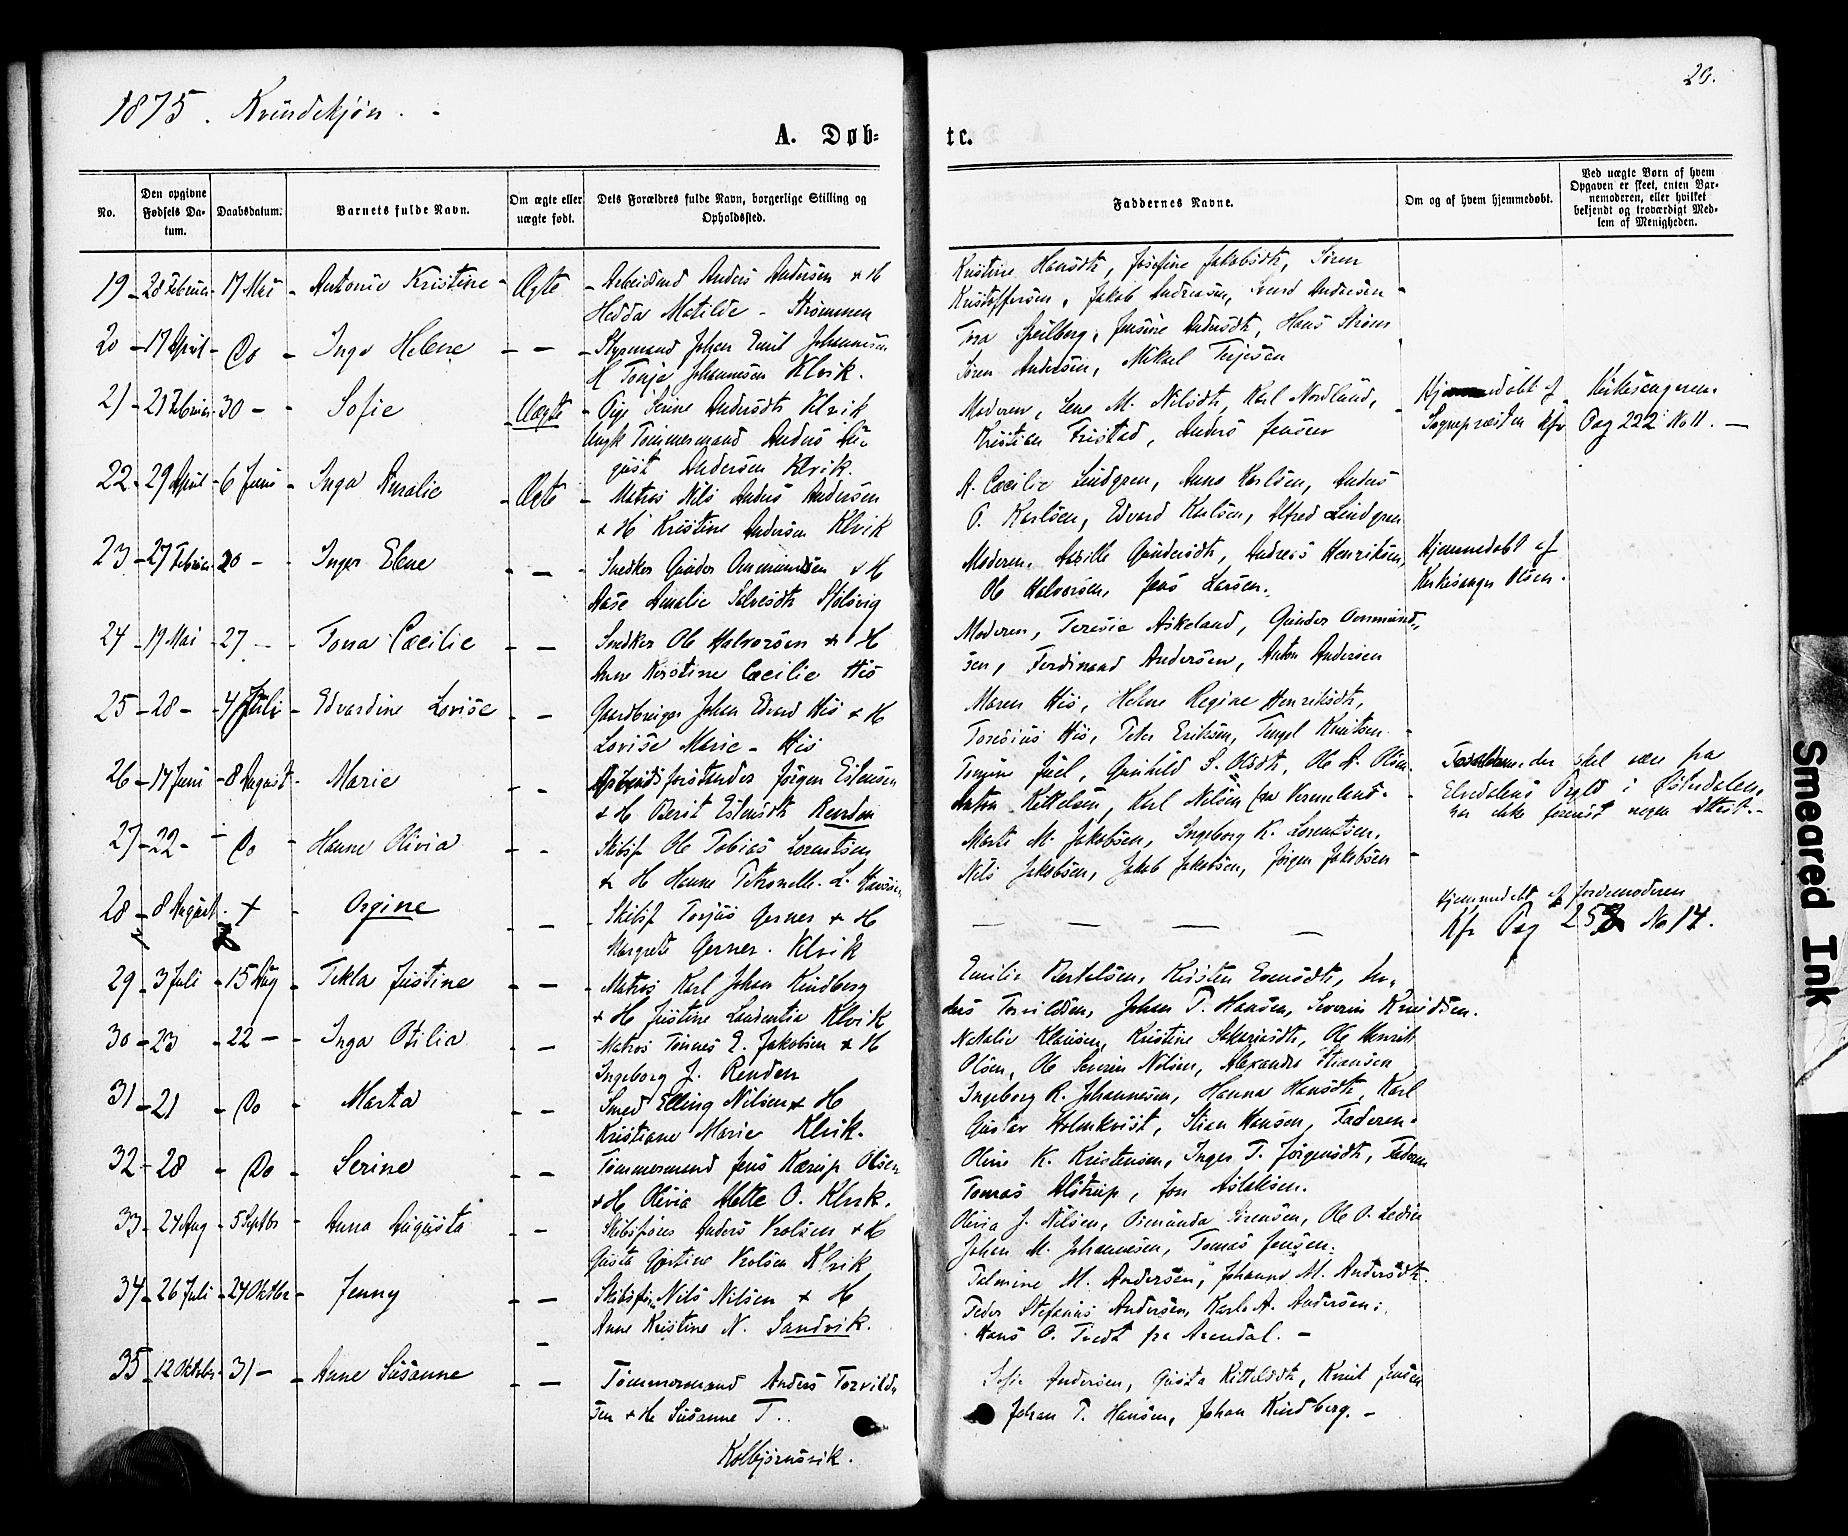 20.
1875. Kvindekjøn.
A. Døb-
te.
No.
Den opgivne Fødsels Da-tum.
Daabsdatum.
Barnets fulde Navn.
Om ægte eller uægte født.
Dets Forældres fulde Navn, borgerlige Stilling og Opholdssted.
Faddernes Navne.
Om og af hvem hjemmedøbt.
Ved uægte Børn af hvem Opgaven er skeet, enten Bar-nemoderen, eller hvilket bekjendt og troværdigt Med-lem af Menigheden.
19 - 28 Februar - 17 Mai - Antonie Kristine - Ægte - Arbeidsmd Anders Andersen & H
Hedda Matilde - Strømmen
Kristine Hansdt, Josefine Jakobsdt, Sören
Kristoffersen, Jakob Andersen, Svend Andersen
20 - 17 April - Do - Inga Helene - — - Styrmand Johan Emil Johannesen
H Tonje Johannesen Klvik.
Tora Speilberg, Jensine Andersdt, Hans Ström
Sören Andersen, Mikael Terjesen
21 - 21 Februar - 30 - Sofie - Uægte - Pige Serine Andersdt Klvik
Ungk Tömmermand Anders Au-
gust Andersen Klvik.
Moderen, Lene M. Nilsdt, Karl Nordland,
Kristian Fristad, Anders Jensen
Hjemmedöbt af Kirkesangeren.
Sogneprästen Kfr Pag 222 No 11. —
22 - 29 April - 6 Juni - Inga Amalie - Ægte - Matros Nils Anders Andersen
& H Kristine Andersen Klvik
A. Cæcilie Lindgren, Anna Karlsen, Anders
O. Karlsen, Edvard Karlsen, Alfred Lindgren
23 - 27 Februar - 20 - Inger Elene - — - Snedker Gunder Ommundsen & H
Aase Amalie Salvesdt Stölsvig
Moderen, Gundersdt, Andreas Henriksen,
Ole Halvorsen, Jens Larsen.
Hjemmedöbt af
Kirkesanger Olsen.
24 - 17 Mai - 27 - Tora Cæcilie - — Snedker Ole Halvorsen & H
Anne Kirstine Cæcilie His
Moderen, Teresie Askeland, Gunder Ommund-
sen, Ferdinand Andersen, Anton Andersen
25 - 28 - 4 Juli - Edvardine Lovise - — Gaardbruger Johan Edvard His & H
Lovise Marie - His
Maren His, Helene Regine Henriksdt,
Toresius His, Peter Eriksen, Tengel Knutsen
26 - 17 Juni - 8 August - Marie - - Arbeidsforstander Jörgen Estensen
& H Berit Estensdt Renden
Tomine Juel, Gunhild S. Olsdt, Ole A. Olsen
Anton Kittelsen, Karl Nilsen fra Vermeland.
Forældrene, der skal være fra
Elvedalens Prgld i Österdalen,
har ikke forevist nogen Attest.-
27 - 22 - Do - Hanne Olivia - - Skibsf Ole Tobias Lorentsen
& H Hanne Petronelle. L. Hansen
Marte M. Jakobsen, Ingeborg K. Lorentsen,
Nils Jakobsen, Jakob Jakobsen, Jörgen Jakobsen
28 - 8 August - + - Orgine - — - Skibsf Torjus Gerner & H
Margrete Gerner. Klvik
— — — —
Hjemmedöbt af Jordemoderen
Kfr Pag 258 No 17.
29 - 3 Juli - 15 Aug - Tekla Justine - — - Matros Karl Johan Kindberg
& H Justine Laurentia Klvik
Emilie Bertelsen, Kirsten Evensdt, An-
ders Torvildsen, Johan T. Hansen, Severin Knudsen.
30 - 23 - 22 - Inga Otilia - — Matros Tönnes E. Jakobsen & H
Ingeborg J. Renden
Natalie Klausen, Kristine Sakariasdt, Ole Henrik
Olsen, Ole Severin Nilsen, Alexander Stiansen
31 - 21 - Do - Marta - — Smed Elling Nilsen & H
Kristiane Marie Klvik.
Ingeborg R. Johannesen, Hanna Hansdt, Karl
Gustav Holmkvist, Stian Hansen, Faderen.
32 - 28 - Do - Serine - — Tömmermand Jens Kærup Olsen
& H. Olivia Mette O. Klvik.
Oline K. Kristensen, Inger T. Jörgensdt, Faderen
Tomas Alstrup, Jon Aslaksen.
33 - 24 Aug - 5 Septbr - Anna Augusta - — Skibsförer Anders Vrolsen & H
Gusta Gjurtine Vrolsen Klvik
Olivia J. Nilsen, Osmunda Sörensen, Ole O. Ledin
Johan M. Johannesen, Tomas Jensen.
34 - 26 Juli - 24 Oktbr - Jenny - — Skibsför Nils Nilsen & H
Anne Kristine N. Sandvik.
Talmine M. Andersen, Johanne M. Andersdt.
Peder Stefanus Andersen, Karl A. Andersen;
Hans O. Tvedt fra Arendal. -
35 - 12 Oktober - 31 - Anne Susanne - — Tömmermand Anders Torvild-
sen & H Susanne T..
Kolbjörnsvik.
Sofie Andersen, Gusta Kittelsdt, Knut Jensen
Johan T. Hansen, Johan Kindberg. -
Smeared Ink